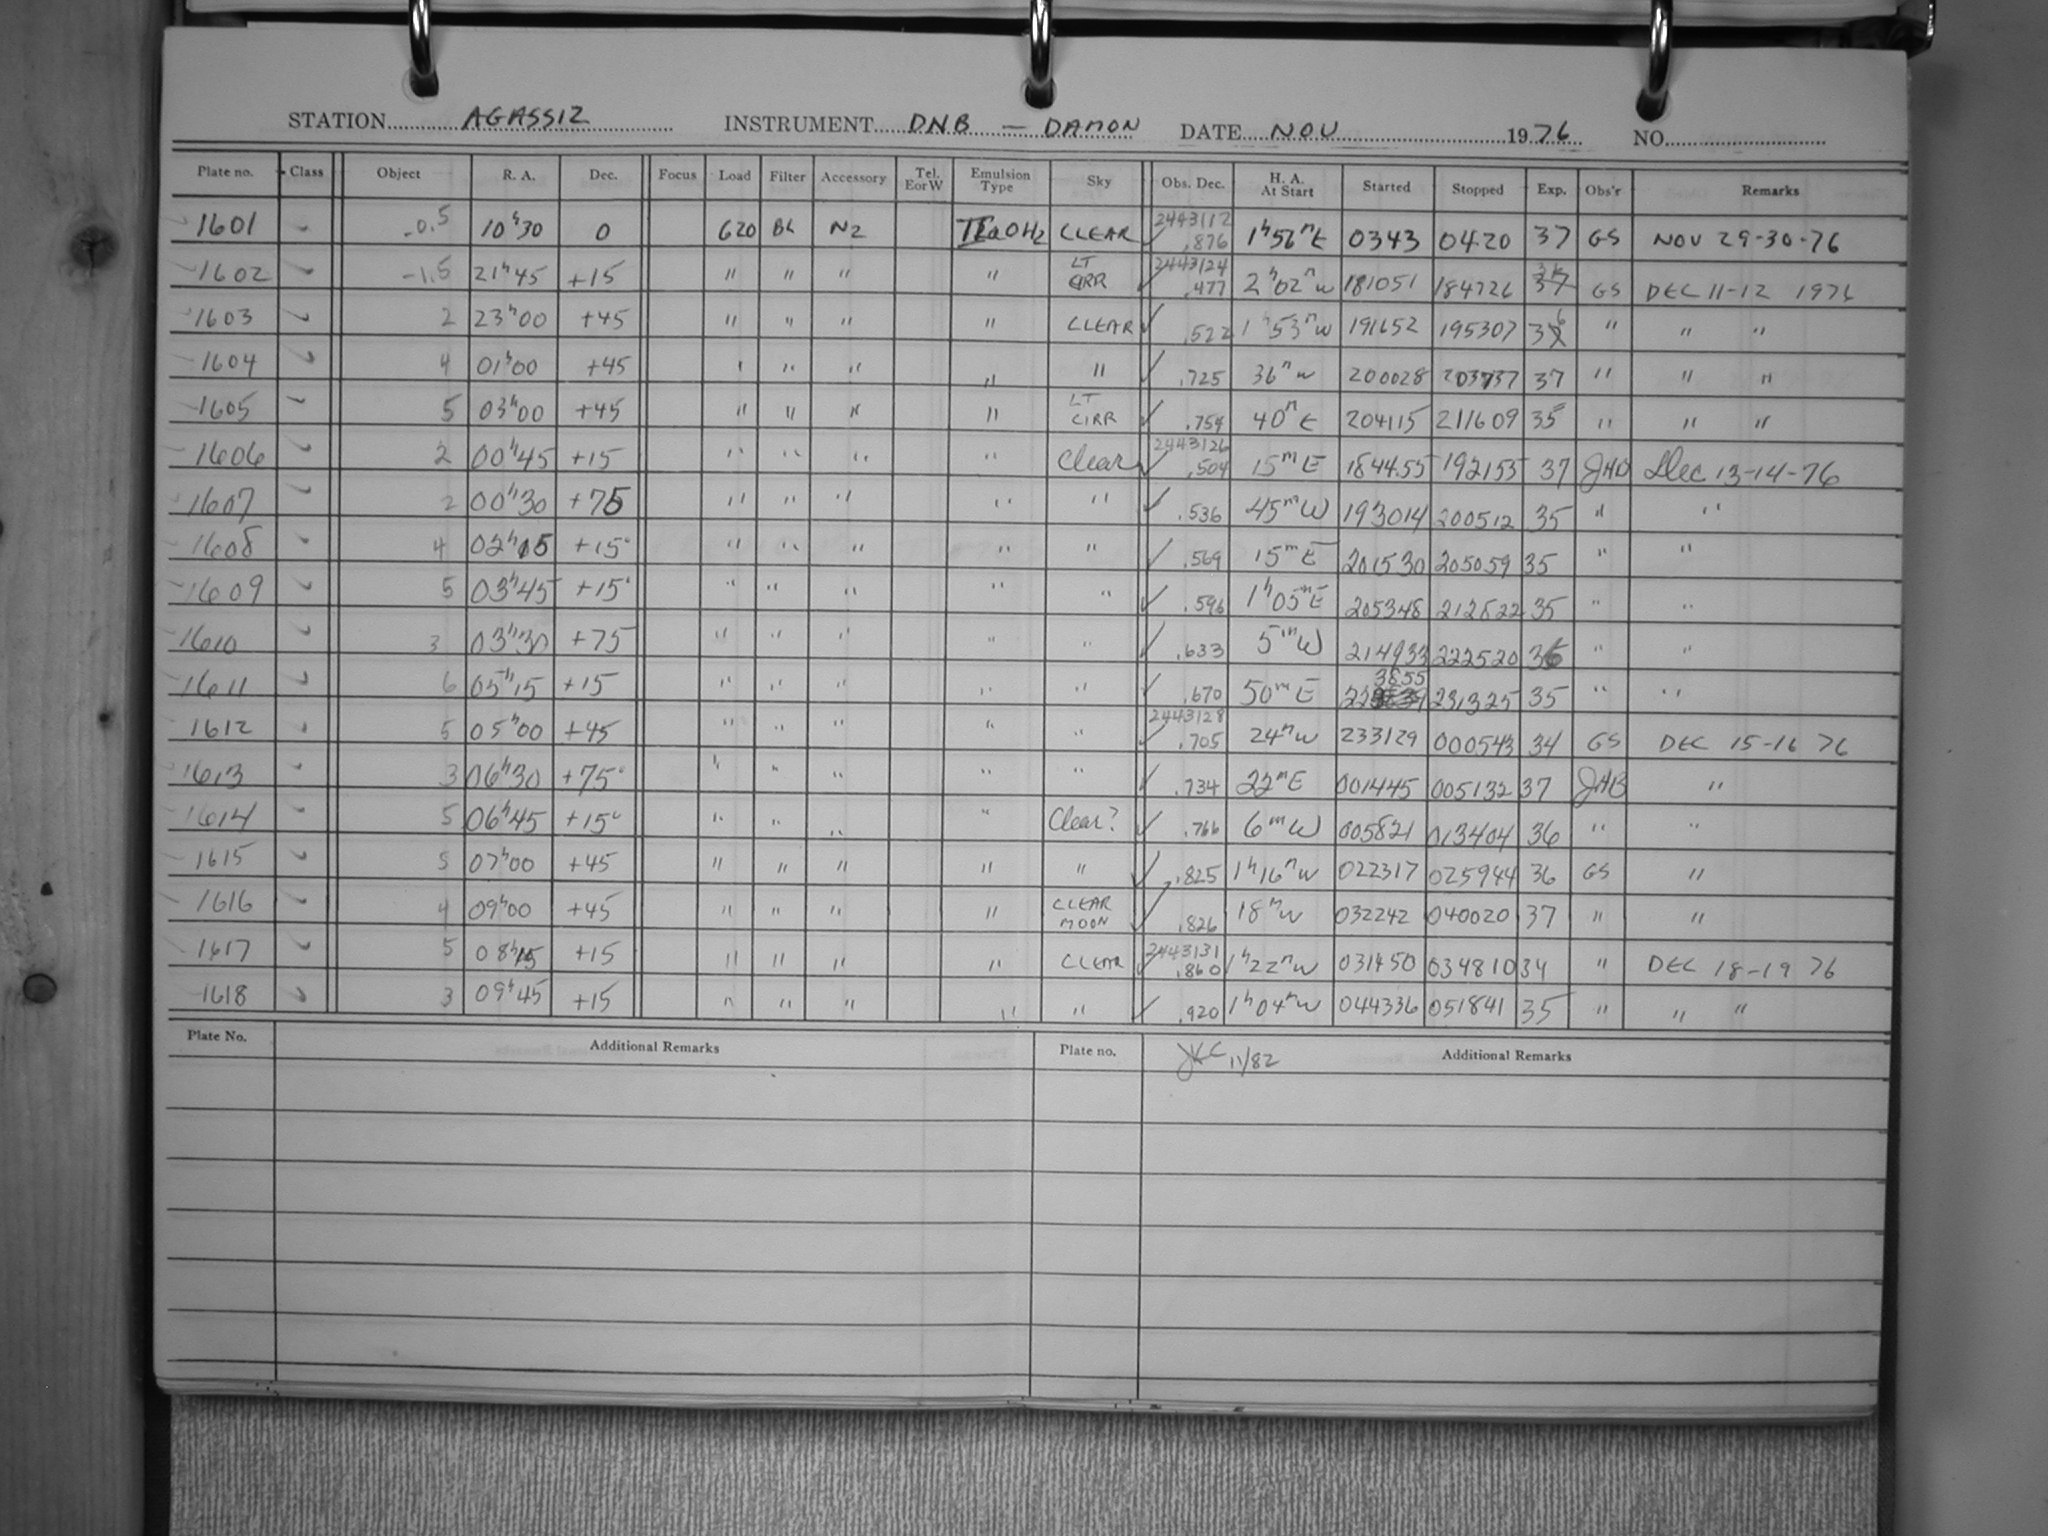 STATION AGASSIZ INSTRUMENT DNB — DAMON DATE NOV 1976 NO.
Plate no. Class Object R. A. Dec. Focus Load Filter Accessory Tel. E or W Emulsion Type Sky Obs. Dec. H. A. At Start Started Stopped Exp. Obs'r Remarks
1601 -0.5 10h30 0 620 BL N2 CLEAR 2443112 .876 1h56mE 0343 0420 37 GS NOV 29-30-76
1602 -1.5 21h45 +15 " " " " LT CIRR 2443124 .477 2h02m W 181051 184726 GS DEC 11-12 1976
1603 2 23h00 +45 " " " " CLEAR .522 1h53m W 191652 195307 36 " " "
1604 4 01h00 +45 ' " " " " .725 36m W 200028 203737 37 " " "
1605 5 03h00 +45 " " " " LT CIRR .754 40m E 204115 211609 35 " " "
1606 2 00h45 +15 " " " " Clear 2443126 .504 15m E 184455 192155 37 JHB Dec 13-14-76
1607 2 00h30 +75 " " " " " .536 45m W 193014 200512 35 " "
1608 4 02h15 +15° " " " " " .569 15m E 201530 205059 35 " "
1609 5 03h45 +15° " " " " " .596 1h05m E 205348 212822 35 " "
1610 3 03h30 +75 " " " " " .633 5m W 214933 222520 36 " "
1611 6 05h15 +15 " " " " " .670 50m E 223855 231325 35 " "
1612 5 05h00 +45 " " " " " 2443128 .705 24m W 233129 000543 34 GS DEC 15-16 76
1613 3 06h30 +75° " " " " " .734 22m E 001445 005132 37 JHB "
1614 5 06h45 +15° " " " " Clear? .766 6m W 005821 013404 36 " "
1615 5 07h00 +45 " " " " " .825 1h16m W 022317 025944 36 GS "
1616 4 09h00 +45 " " " " CLEAR MOON .826 18m W 032242 040020 37 " "
1617 5 08h15 +15 " " " " CLEAR 2443131 .860 1h22m W 031450 034810 34 " DEC 18-19 76
1618 3 09h45 +15 " " " " " .920 1h04m W 044336 051841 35 " " "
Plate No. Additional Remarks Plate no. Additional Remarks
JKC 11/82